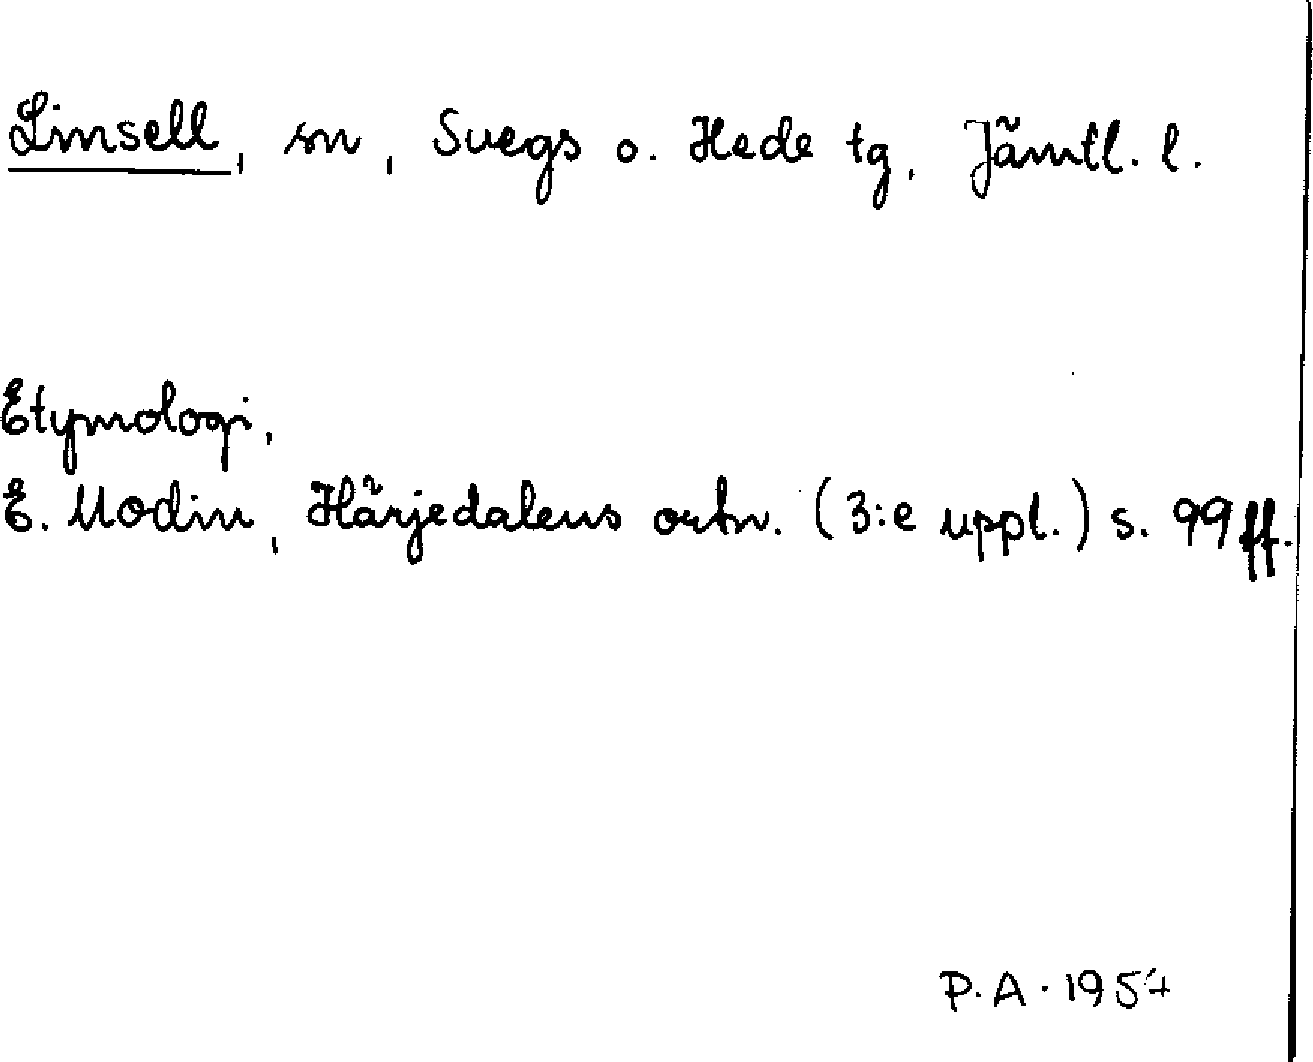 Linsell, sn, Svegs o. Hede tg, Jämtl. l.
Etymologi,
E. Modin, Härjedalens ortn. (3:e uppl.) s. 99 ff.
P.A. 1957